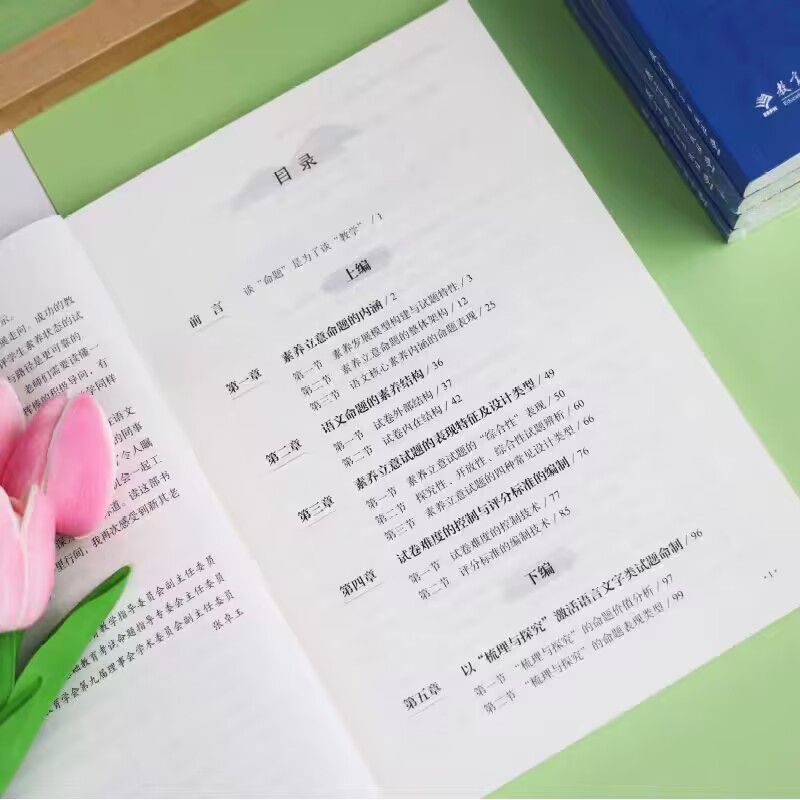 示。
展走向，成功的教
学生素养状态的试
与路径是更可靠的
老师们需要读懂一
辉楼的积极导向，有
学同样
在语文
的同事
令人瞩
机会一起工
道。读这部书
里行间，我再次感受到新其老
教学指导委员会副主任委员
基础教育考试命题指导专委会主任委员
教育学会第九届理事会学术委员会副主任委员
张卓玉
目录
前言 谈“命题”是为了谈“教学” / 1
上编
第一章 素养立意命题的内涵 / 2
第一节 素养发展模型构建与试题特性 / 3
第二节 素养立意命题的整体架构 / 12
第三节 语文核心素养内涵的命题表现 / 25
第二章 语文命题的素养结构 / 36
第一节 试卷外部结构 / 37
第二节 试卷内在结构 / 42
第三章 素养立意试题的表现特征及设计类型 / 49
第一节 素养立意试题的“综合性”表现 / 50
第二节 探究性、开放性、综合性试题辨析 / 60
第三节 素养立意试题的四种常见设计类型 / 66
第四章 试卷难度的控制与评分标准的编制 / 76
第一节 试卷难度的控制技术 / 77
第二节 评分标准的编制技术 / 85
下编
第五章 以“梳理与探究”激活语言文字类试题命制 / 96
第一节 “梳理与探究”的命题价值分析 / 97
第二节 “梳理与探究”的命题表现类型 / 99
·1·
教育
Educa